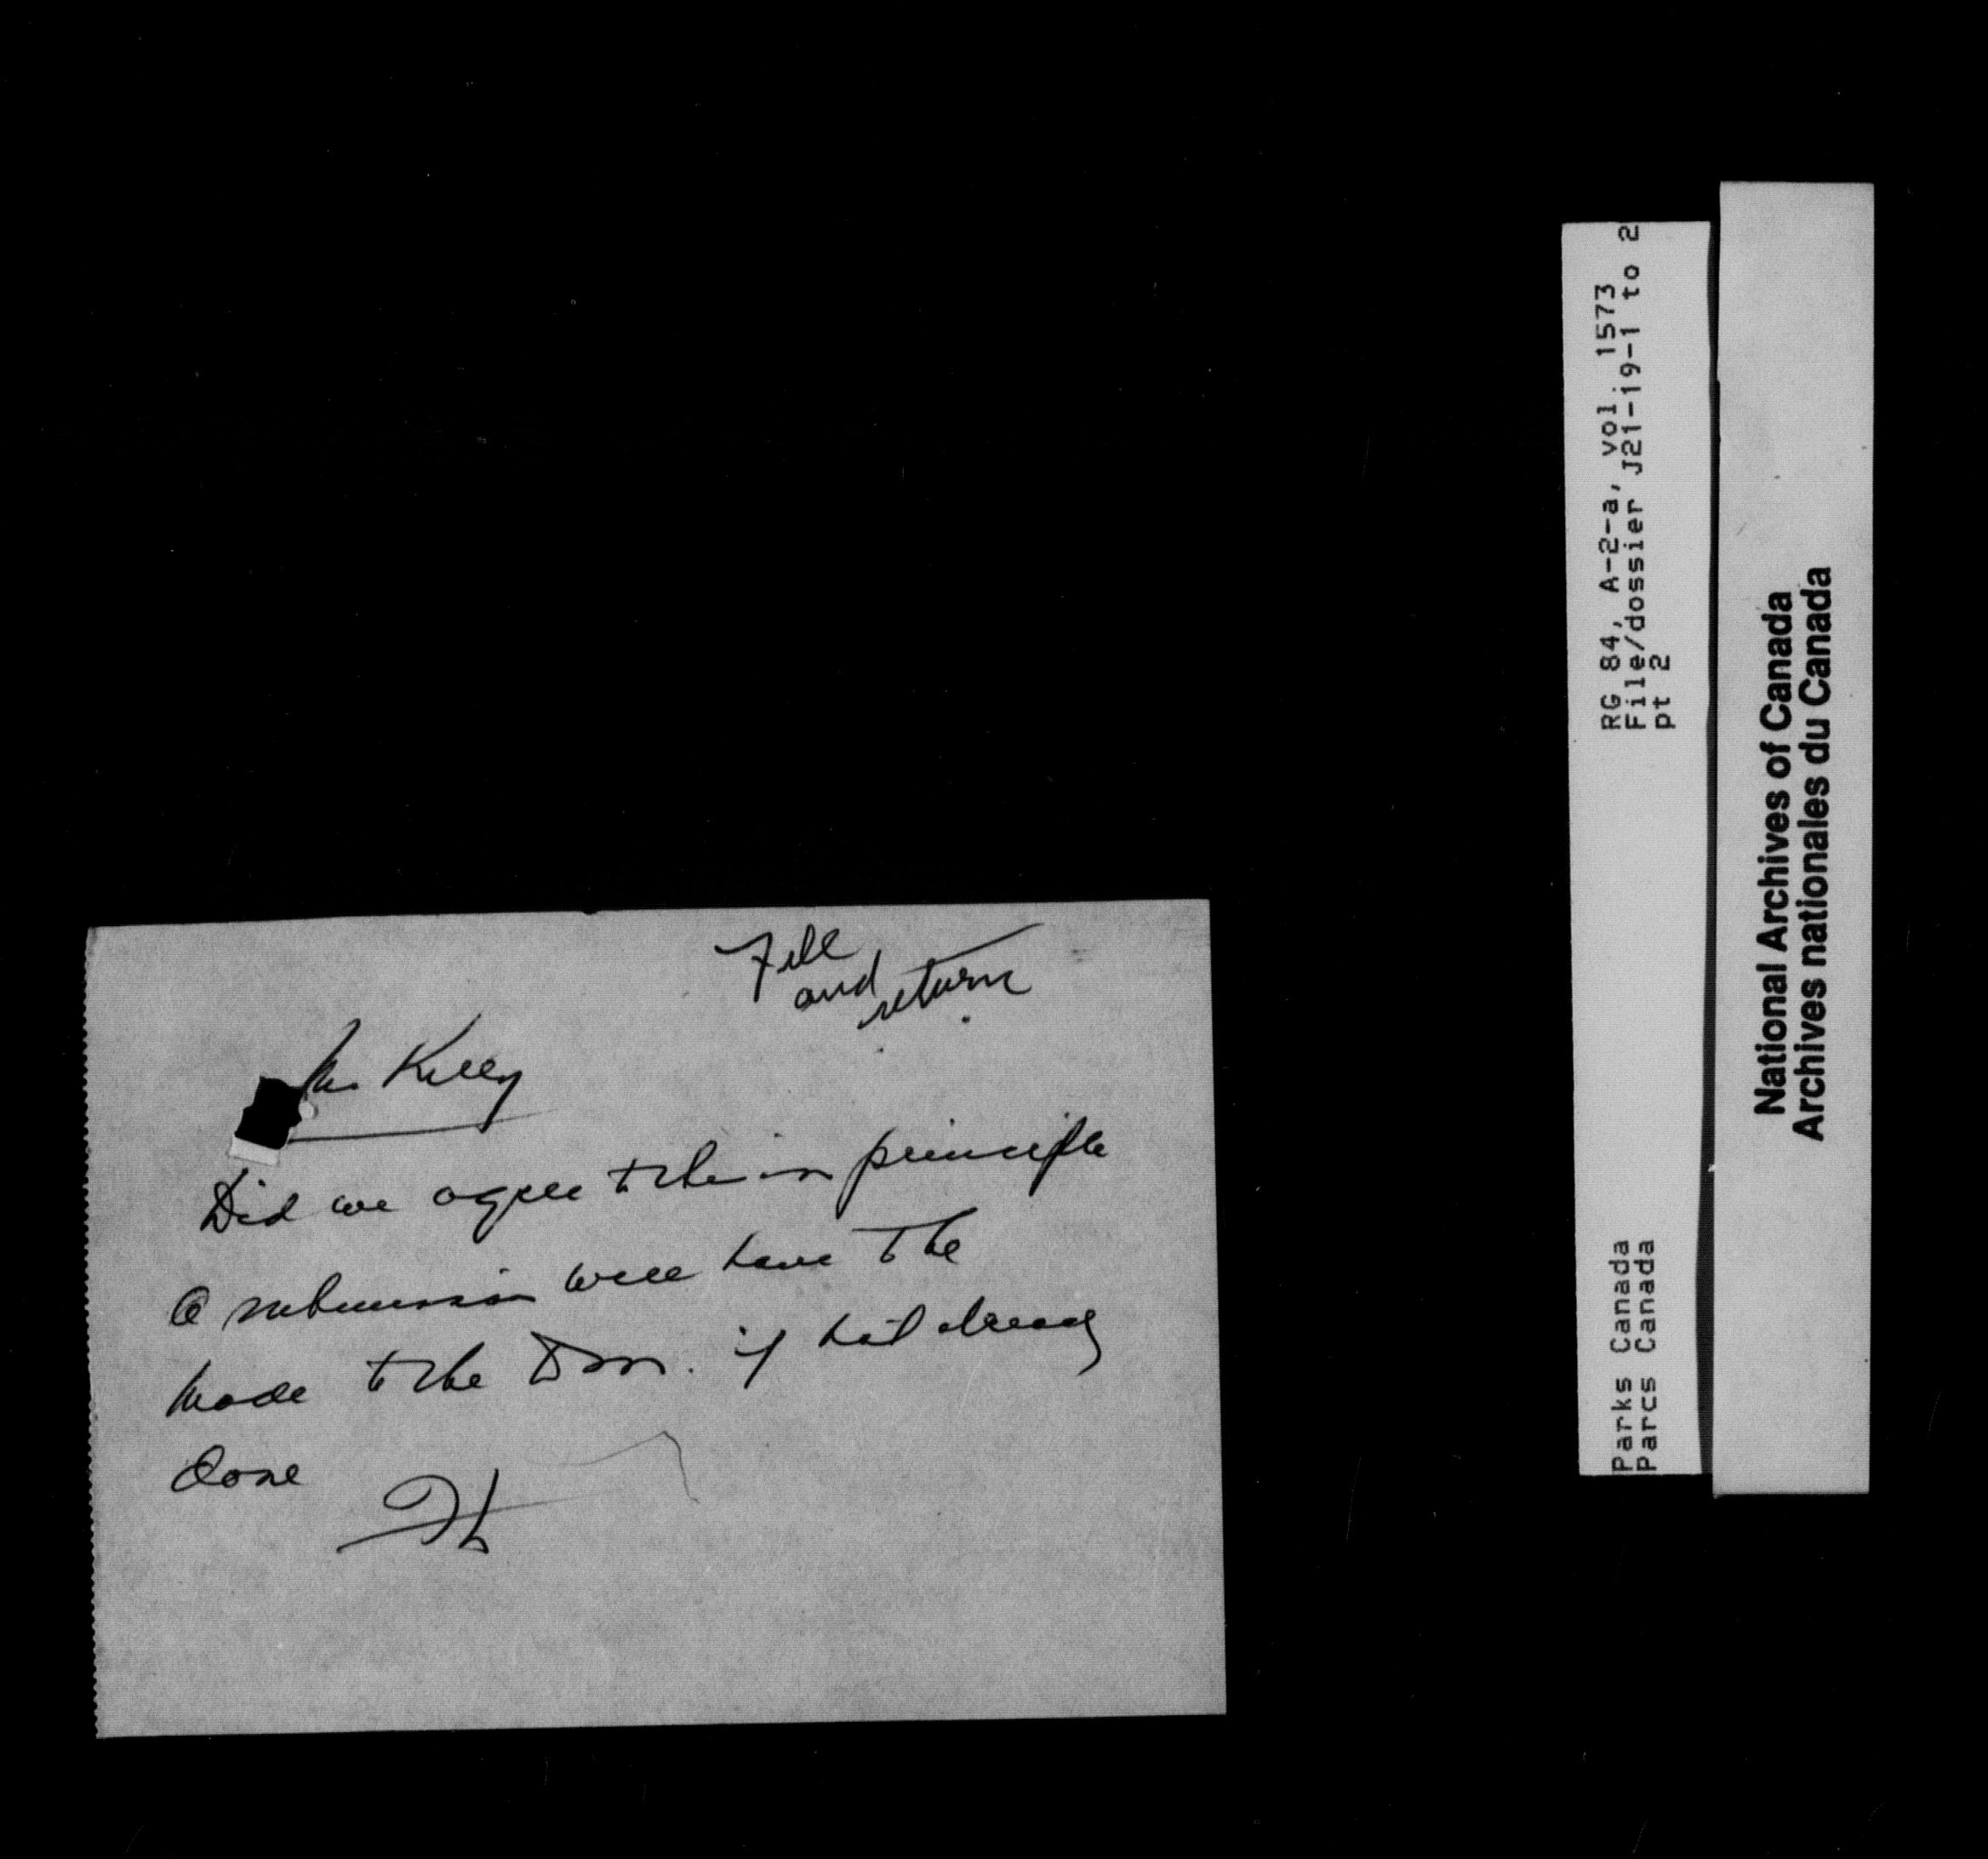 File
and return.
Mr Kelly
Did we agree to the in principle
A submission will have to be
made to the D.M. if not already
done
RG 84, A-2-a, vol. 1573
File/dossier J21-19-1 to 2
pt 2
Parks Canada
Parcs Canada
National Archives of Canada
Archives nationales du Canada